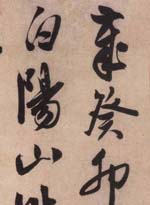 歲癸卯
白陽山